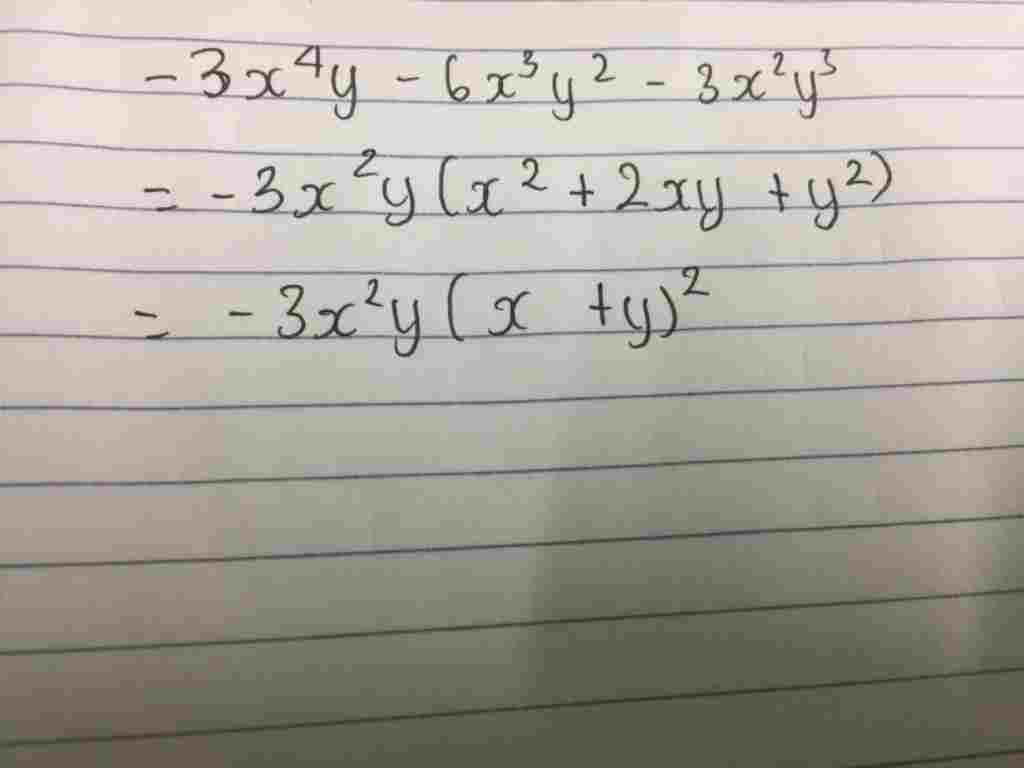 -3x⁴y - 6x³y² - 3x²y³
= -3x²y(x² + 2xy + y²)
= -3x²y(x + y)²